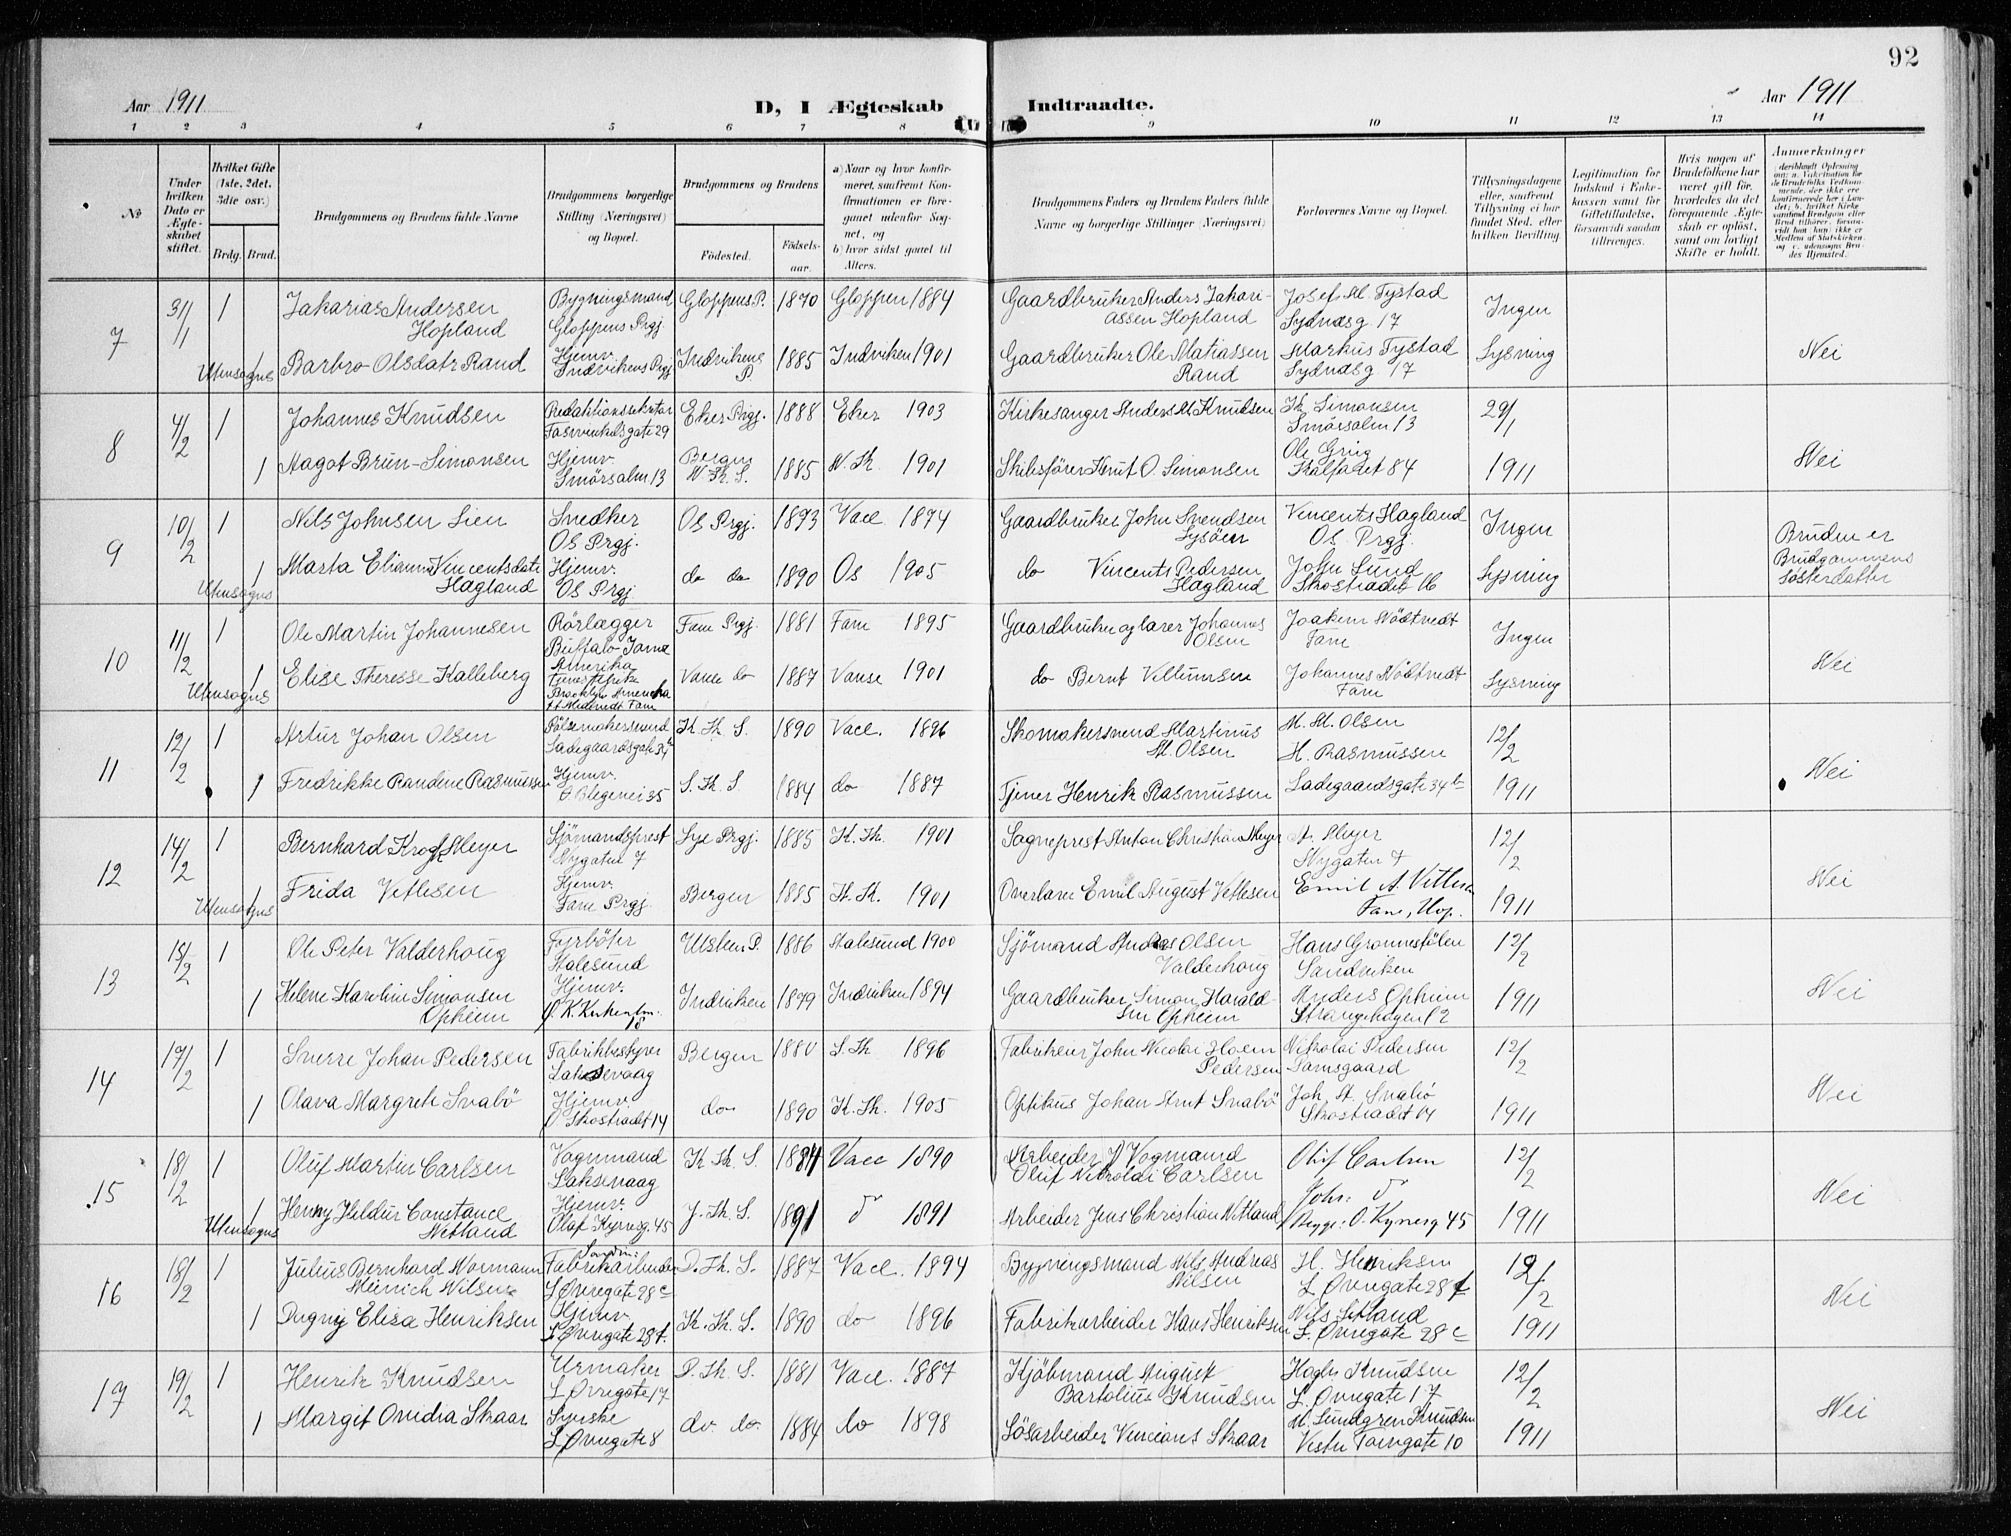 92
Aar 1911
D, I Ægteskab Indtraadte.
Aar 1911
1 2 3 4 5 6 7 8 9 10 11 12 13 14
No
Under hvilken Dato er Ægteskabet stiftet.
Hvilket Gifte (1ste, 2det, 3die osv.)
Brdg. Brud.
Brudgommens og Brudens fulde Navne
Brudgommens borgerlige Stilling (Næringsvei) og Bopæl.
Brudgommens og Brudens
Fødested.
Fødselsaar.
a) Naar og hvor konfirmeret, saafremt Konfirmationen er foregaaet udenfor Sognet, og
b) hvor sidst gaaet til Alters.
Brudgommens Faders og Brudens Faders fulde Navne og borgerlige Stillinger (Næringsvei)
Forlovernes Navne og Bopæl.
Tillysningsdagene eller, saafremt Tillysning ei har fundet Sted, efter hvilken Bevilling.
Legitimation for Indskud i Enkekassen samt for Giftetilladelse, forsaavidt saadan tiltrænges.
Hvis nogen af Brudefolkene har været gift før, hvorledes da det foregaaende Ægteskab er opløst, samt om lovligt Skifte er holdt.
Anmærkninger
7 31/1 1 Zakarias Andersen Hopland Bygningsmand Gloppens Prgj. Gloppens P. 1870 Gloppen 1884 Gaardbruker Anders Zakariassen Hopland Josef M. Tystad Sydnæsg 17 Ingen
Utensogns 1 Barbro Olsdatr Rand Hjemv. Indvikens Prgj. Indvikens P. 1885 Indviken 1901 Gaardbruker Ole Matiassen Rand Markus Tystad Sydnæsg 17 Lysning Nei
8 4/2 1 Johannes Knudsen Redaktionssekretær 29 Eker Prgj. 1888 Eker 1903 Kirkesanger Anders M. Knudsen Th. Simonsen Smørsalm 13 29/1
1 Aagot Brun-Simonsen Hjemv. Smørsalm 13 Bergen N. K. S. 1885 N. K. 1901 Skibsfører Knut O. Simonsen Ole Grieg Kalfaret 84 1911 Nei
9 10/2 1 Nils Johnsen Lien Snedker Os Prgj. Os Prgj. 1873 Vacc 1874 Gaardbruker John Svendsen Lysøen Vincents Hagland Os Prgj. Ingen
Utensogns 1 Marta Elianna Vincentsdatr Hagland Hjemv. Os Prgj do do 1890 Os 1905 do Vincents Pedersen Hagland John Lund Skostrædet 16 Lysning Bruden er Brudgommens Søsterdatter
10 11/2 1 Ole Martin Johannesen Rørlægger Buffalo Amerika Fane Prgj. 1881 Fane 1895 Gaardbruker og lærer Johannes Olsen Joakim Nödtvedt Fane Ingen
Utensogns 1 Elise Therese Kalleberg Brooklyn Amerika Fane Vanse do 1887 Vanse 1901 do Bernt Villumsen Johannes Nödtvedt Fane Lysning Nei
11 12/2 1 Artur Johan Olsen Pölsemakersvend Ladegaardsgate K. K. S. 1890 Vacc. 1896 Skomakersvend Martinus M. Olsen M. M. Olsen 12/2
1 Fredrikke Randine Rasmussen Hjemv. Ø. Blegevei 35 S. K. S. 1884 do 1887 Tjener Henrik Rasmussen H. Rasmussen Ladegaardsgate 34b 1911 Nei
12 14/2 1 Bernhard Krogh Meyer Sjömandsprest Nygaten 7 Lye Prgj. 1885 K. K. 1901 Sogneprest Anton Christian Meyer A. Meyer Nygaten 7 12/2
Utensogns 1 Frida Vetlesen Hjemv. Fane Prgj. Bergen 1885 K. K. 1901 Overlærer Emil August Vetlesen Emil A. Vetlesen Fane, Hop. 1911 Nei
13 15/2 1 Ole Peter Valderhoug Fyrböter Aalesund Ulsten P. 1886 Aalesund 1900 Sjömand Andreas Olsen Valderhoug Hans Gronnestölen Sandviken 12/2
1 Helene Karoline Simonsen Opheim Hjemv. 18 Indviken 1879 Indviken 1894 Gaardbruker Simon Haraldsen Opheim Anders Opheim Strangehagen 12 1911 Nei
14 17/2 1 Sverre Johan Pedersen Fabrikbestyrer Laksevaag Bergen 1880 S. K. 1896 Fabrikeier John Nicolai Hoem Pedersen Nikolai Pedersen Damsgaard 12/2
1 Olava Margrete Svabö Hjemv. Ø Skostrædet 14 do 1890 K. K. 1905 Optikus Johan Arnt Svabö Joh. A. Svabö Skostrædet 14 1911 Nei
15 18/2 1 Oluf Martin Carlsen Vognmand Laksevaag K. K. S. 1884 Vacc 1890 Arbeider & Vognmand Oluf Nikolai Carlsen Oluf Carlsen 12/2
Utensogns 1 Henny Heldur Constance Netland Hjemv. Olaf Kyrresg. 45 J. K. S. 1891 do 1891 Arbeider Jens Christian Netland Begge: O. Kyrresg 45 1911 Nei
16 18/2 1 Julius Bernhard Normann Meinich Nilsen Fabrikarbeider L Övregate 28c D. K. S. 1887 Vacc. 1894 Bygningsmand Nils Andreas Nilsen H. Henriksen L. Övregate 28f 12/2
1 Dagny Elisa Henriksen Hjemv. L Övregate 28f. K. K. S. 1890 do 1896 Fabrikarbeider Hans Henriksen Nils Setland L. Övregate 28c 1911 Nei
17 19/2 1 Henrik Knudsen Urmaker L Övregate 17 D. K. S. 1881 Vacc. 1887 Kjöbmand August Bartolius Knudsen Knudsen L. Övregate 17 12/2
1 Margit Ovidia Skaar Syerske L Övregate 8 do do 1884 do 1898 Skaar M. Lundgren Knudsen Vestre Torvgate 10 1911 Nei